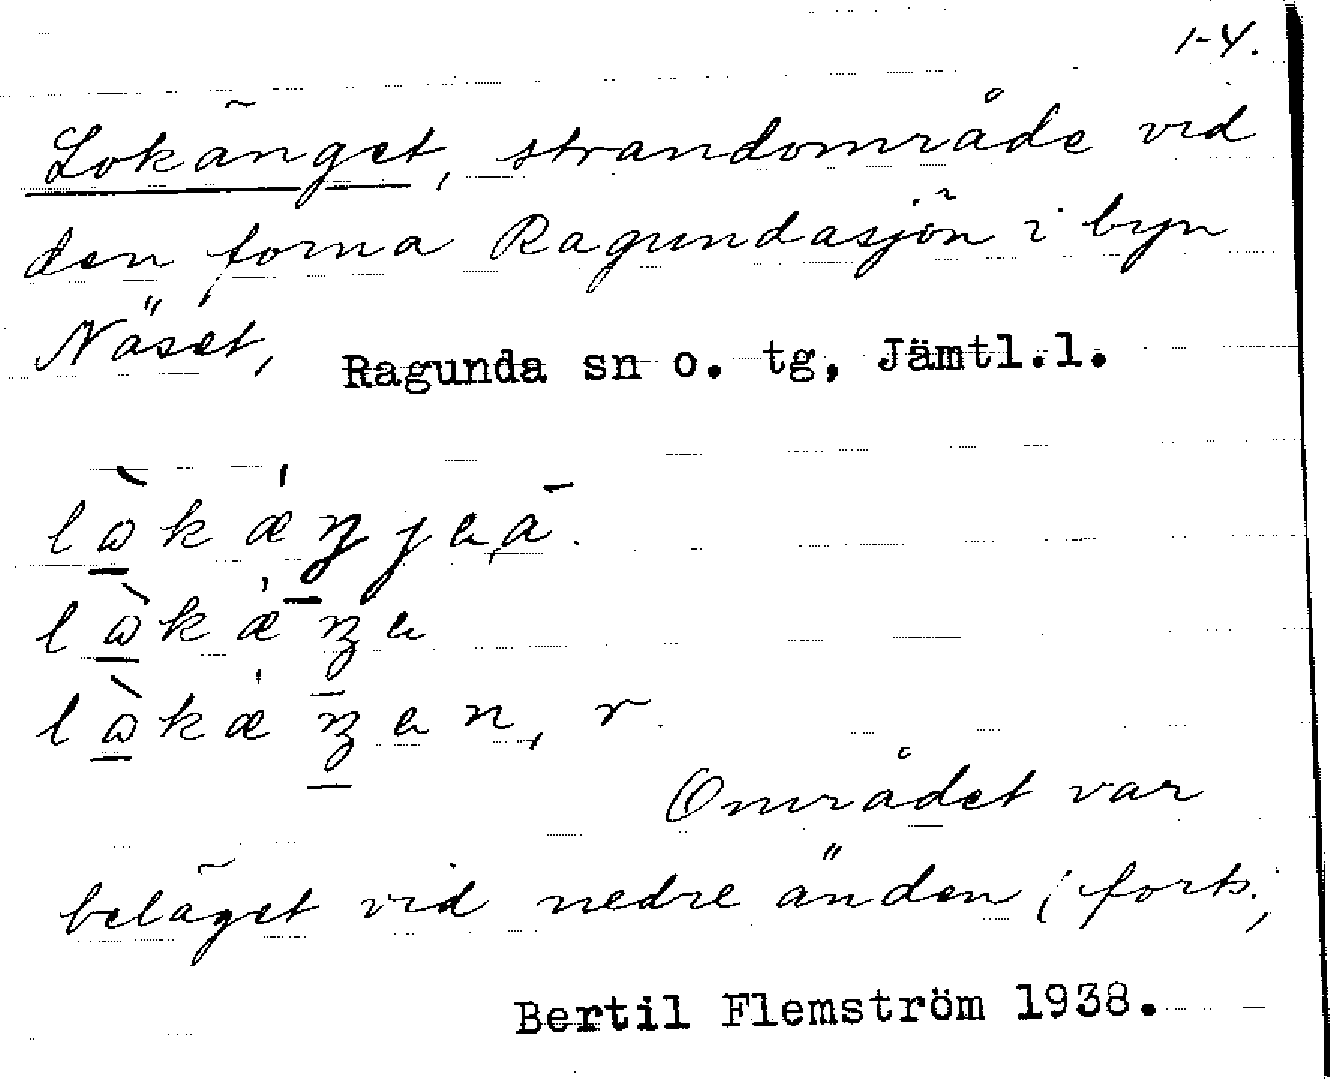 1-4.
Lokänget, strandområde vid
den forna Ragundasjön i byn
Näset, Ragunda sn o. tg, Jämtl.l.
Området var
beläget vid nedre änden (forts.)
Bertil Flemström 1938.